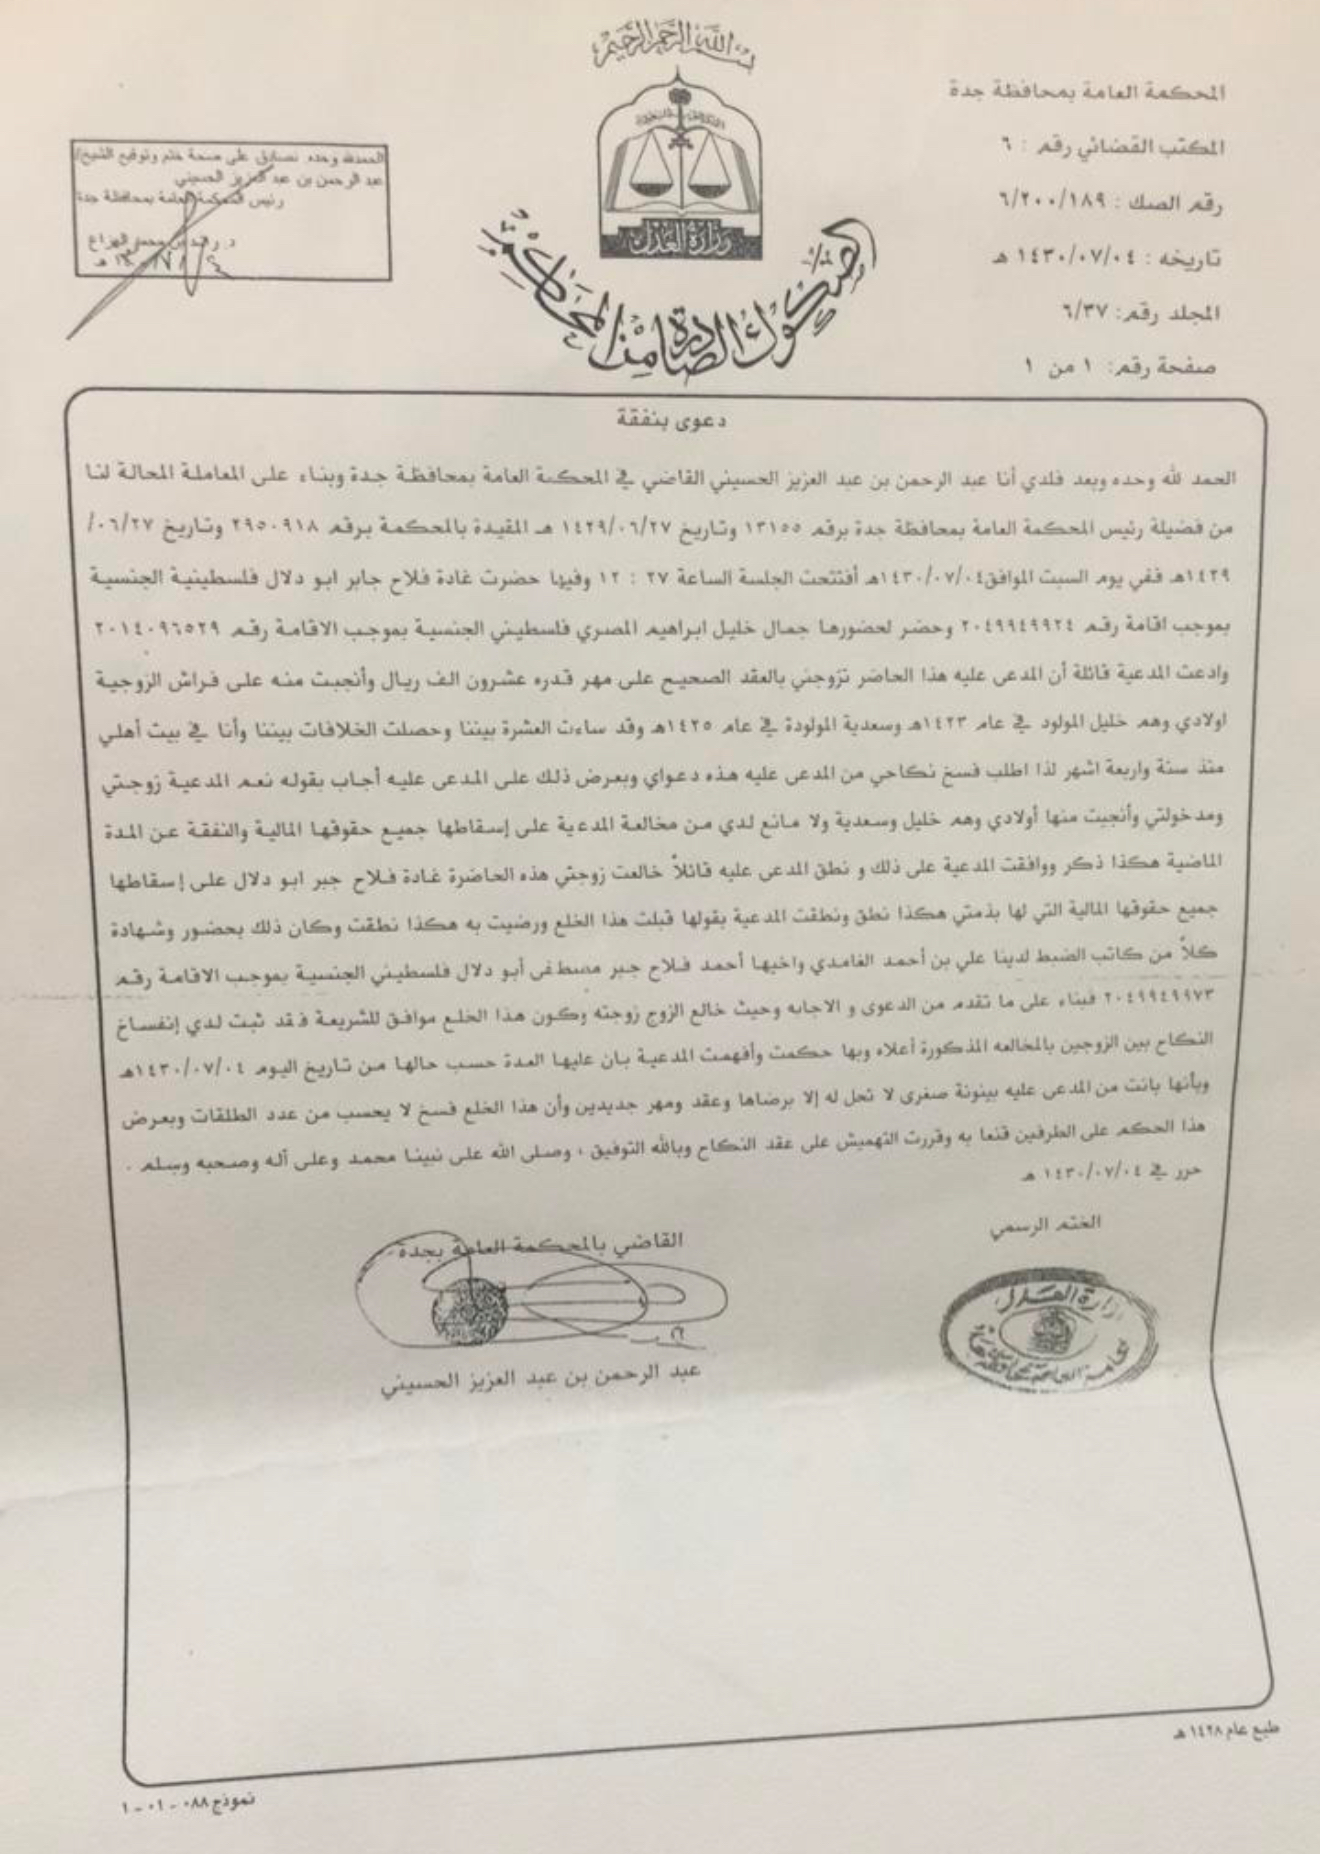 بسم الله الرحمن الرحيم
وزارة العدل
الصكوك الصادرة من المحاكم
المحكمة العامة بمحافظة جدة
المكتب القضائي رقم : ٦
رقم الصك : ٦/٢٠٠/١٨٩
تاريخه : ١٤٣٠/٠٧/٠٤ هـ
المجلد رقم: ٦/٣٧
صفحة رقم: ١ من ١
الحمدلله وحده نصادق على صحة ختم وتوقيع الشيخ/
عبد الرحمن بن عبد العزيز الحسيني
رئيس المحكمة العامة بمحافظة جدة
دعوى بنفقة
الحمد لله وحده وبعد فلدي أنا عبد الرحمن بن عبد العزيز الحسيني القاضي في المحكمة العامة بمحافظة جدة وبناء على المعاملة المحالة لنا
من فضيلة رئيس المحكمة العامة بمحافظة جدة برقم ١٣١٥٥ وتاريخ ١٤٢٩/٠٦/٢٧ هـ المقيدة بالمحكمة برقم ٢٩٥٠٩١٨ وتاريخ ٠٦/٢٧/
١٤٢٩هـ ففي يوم السبت الموافق١٤٣٠/٠٧/٠٤هـ أفتتحت الجلسة الساعة ٢٧ : ١٢ وفيها حضرت غادة فلاح جابر ابو دلال فلسطينية الجنسية
بموجب اقامة رقم ٢٠٤٩٩٤٩٩٢٤ وحضر لحضورها جمال خليل ابراهيم المصري فلسطيني الجنسية بموجب الاقامة رقم ٢٠١٤٠٩٦٥٢٩
وادعت المدعية قائلة أن المدعى عليه هذا الحاضر تزوجني بالعقد الصحيح على مهر قدره عشرون الف ريال وأنجبت منه على فراش الزوجية
اولادي وهم خليل المولود في عام ١٤٢٣هـ وسعدية المولودة في عام ١٤٢٥هـ وقد ساءت العشرة بيننا وحصلت الخلافات بيننا وأنا في بيت أهلي
منذ سنة واربعة اشهر لذا اطلب فسخ نكاحي من المدعى عليه هذه دعواي وبعرض ذلك على المدعى عليه أجاب بقوله نعم المدعية زوجتي
ومدخولتي وأنجبت منها أولادي وهم خليل وسعدية ولا مانع لدي من مخالعة المدعية على إسقاطها جميع حقوقها المالية والنفقة عن المدة
الماضية هكذا ذكر ووافقت المدعية على ذلك و نطق المدعى عليه قائلاً خالعت زوجتي هذه الحاضرة غادة فلاح جبر ابو دلال على إسقاطها
جميع حقوقها المالية التي لها بذمتي هكذا نطق ونطقت المدعية بقولها قبلت هذا الخلع ورضيت به هكذا نطقت وكان ذلك بحضور وشهادة
كلاً من كاتب الضبط لدينا علي بن أحمد الغامدي واخيها أحمد فلاح جبر مصطفى أبو دلال فلسطيني الجنسية بموجب الاقامة رقم
٢٠٤٩٩٤٩٩٧٣ فبناء على ما تقدم من الدعوى و الاجابه وحيث خالع الزوج زوجته وكون هذا الخلع موافق للشريعة فقد ثبت لدي إنفساخ
النكاح بين الزوجين بالمخالعه المذكورة أعلاه وبها حكمت وأفهمت المدعية بان عليها العدة حسب حالها من تاريخ اليوم ١٤٣٠/٠٧/٠٤هـ
وبأنها بانت من المدعى عليه بينونة صغرى لا تحل له إلا برضاها وعقد ومهر جديدين وأن هذا الخلع فسخ لا يحسب من عدد الطلقات وبعرض
هذا الحكم على الطرفين قنعا به وقررت التهميش على عقد النكاح وبالله التوفيق ، وصلى الله على نبينا محمد وعلى آله وصحبه وسلم .
حرر في ١٤٣٠/٠٧/٠٤ هـ
الختم الرسمي
القاضي بالمحكمة العامة بجدة
وزارة العدل
عبد الرحمن بن عبد العزيز الحسيني
طبع عام ١٤٢٨ هـ
نموذج ٠٨٨ - ٠١ - ١